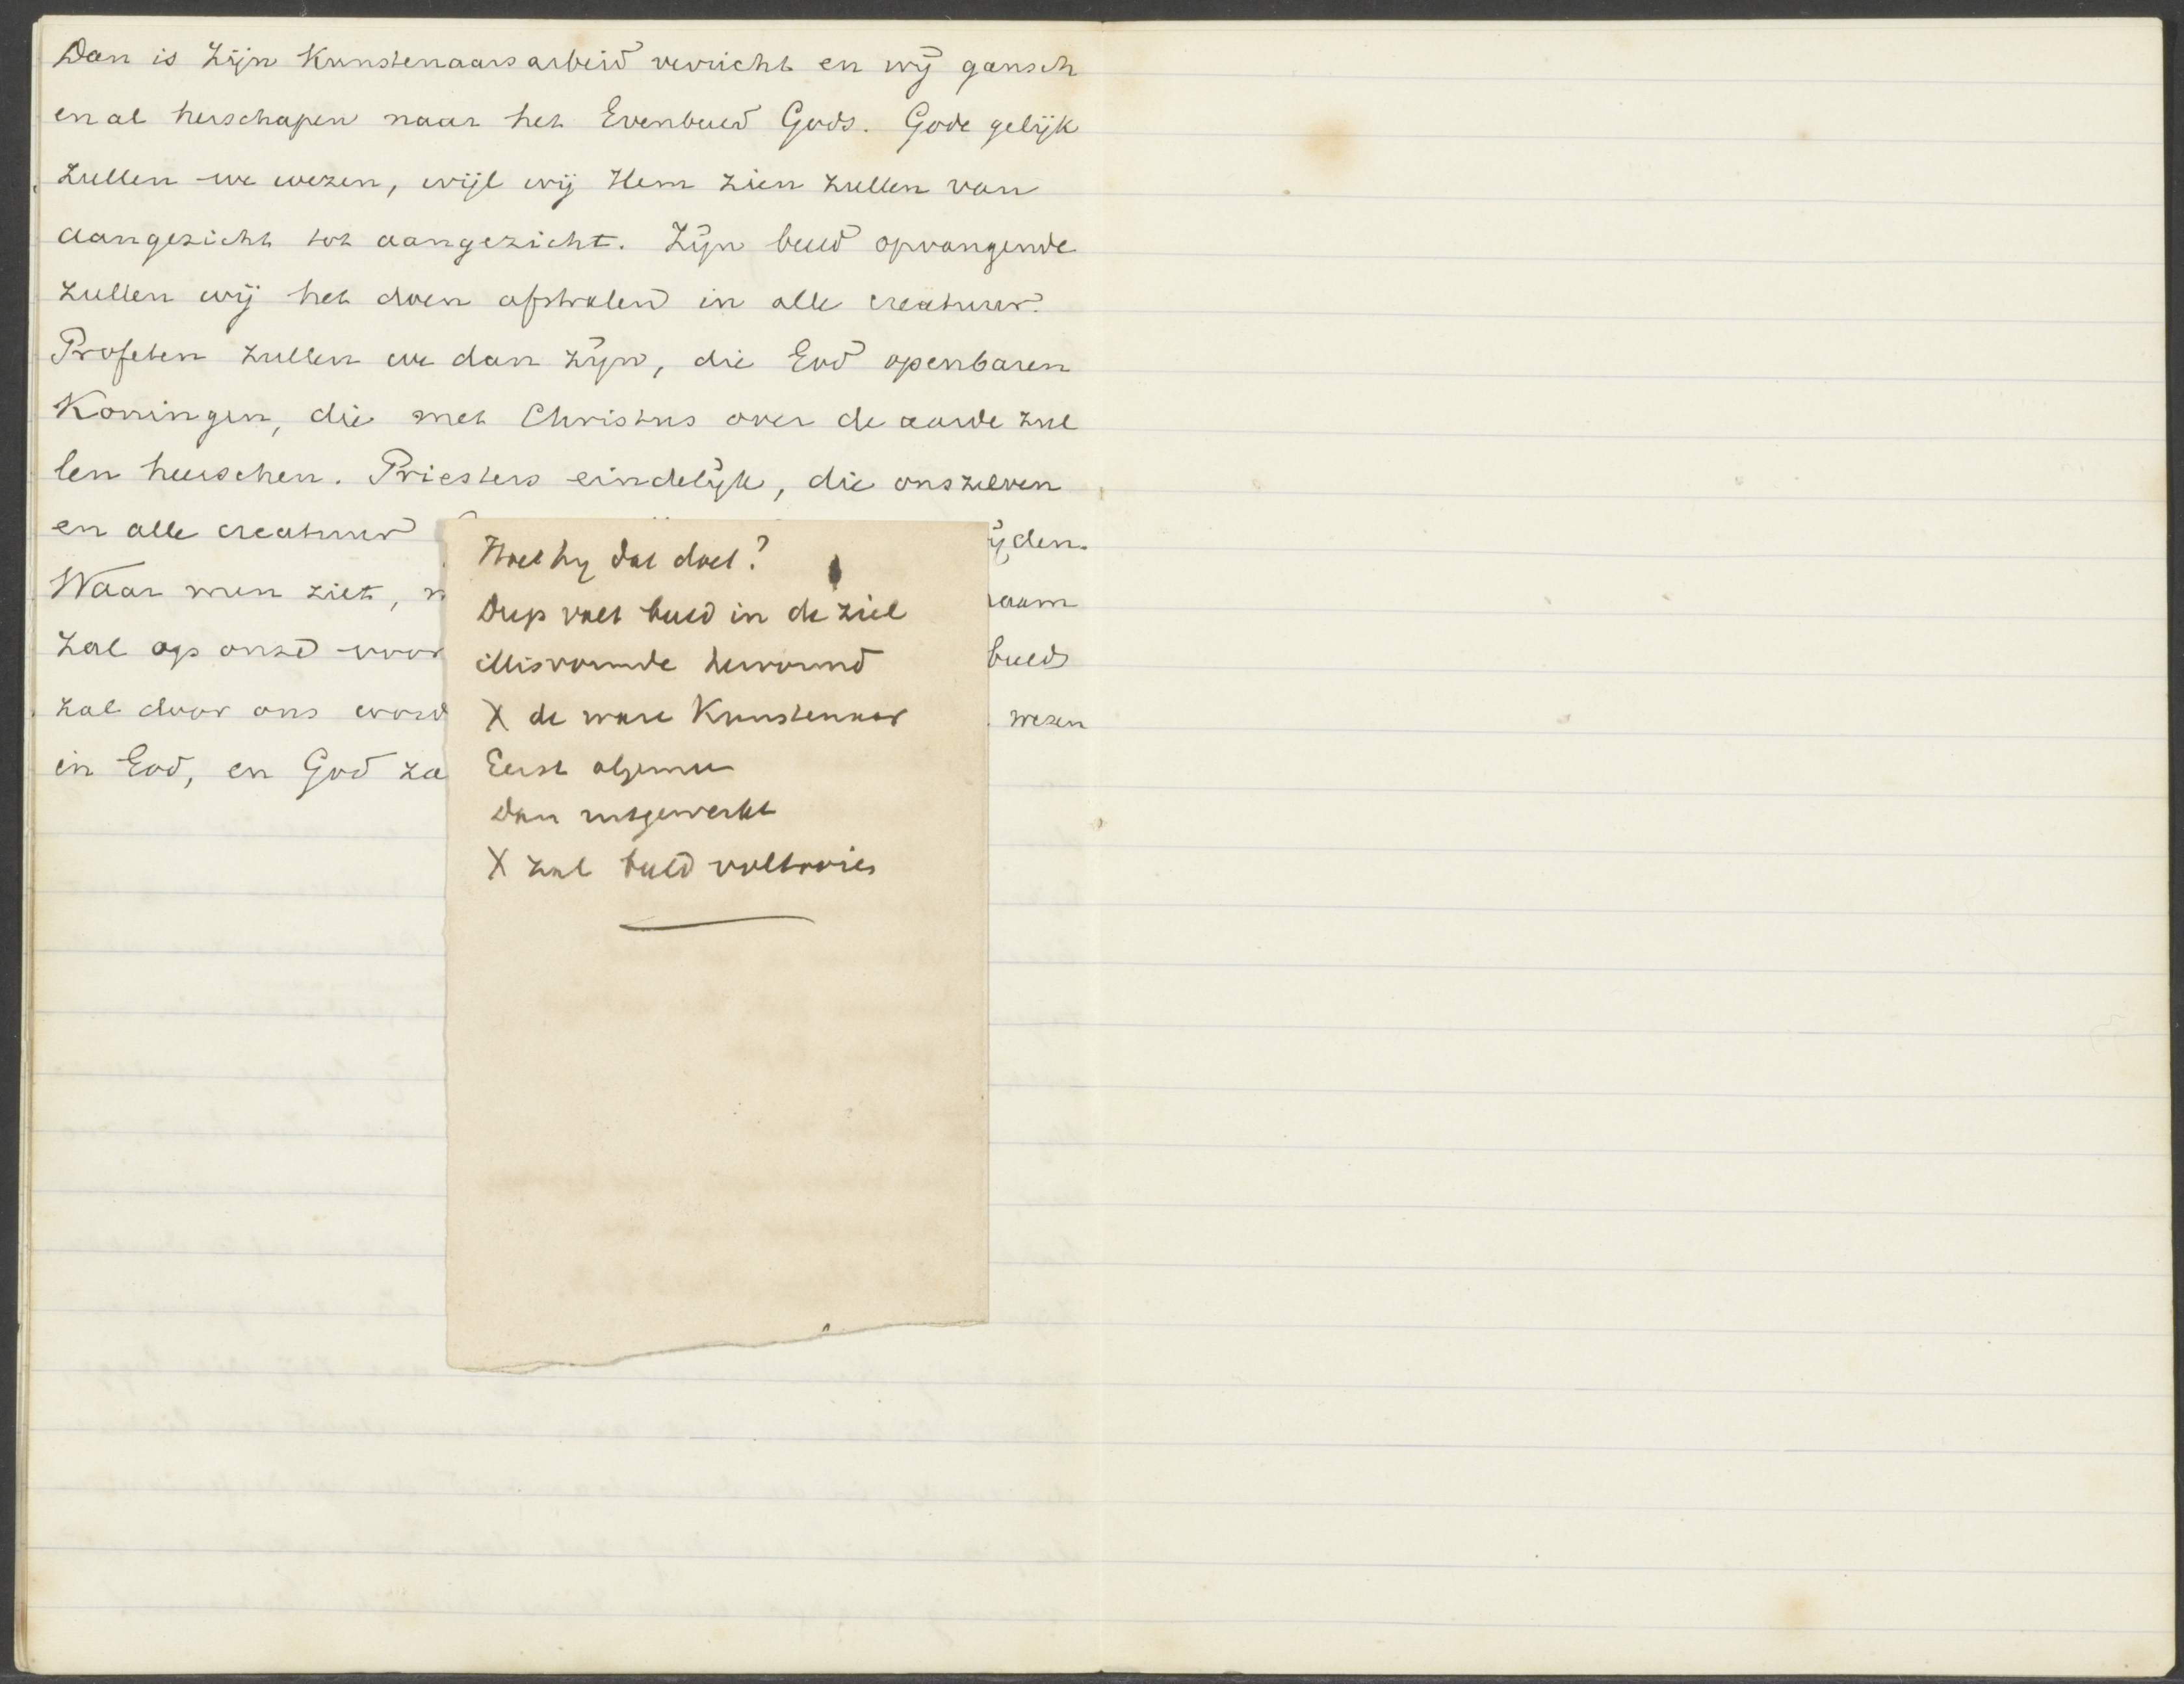 Dan is Zijn Kunstenaarsarbeid verricht en wij gansch
en al herschapen naar het Evenbeeld Gods. Gode gelijk
zullen we wezen, wijl wij Hem zien zullen van
aangezicht tot aangezicht. Zijn beeld opvangende
zullen wij het doen afstralen in alle creatuur.
Profeten zullen we dan zijn, die God openbaren
Koningen, die met Christus over de aarde zul
len heerschen. Priesters eindelijk, die onszelven
en alle creatuur
ijden.
Waar men ziet,
naam
zal op onze voor
beeld
zal door ons word
wezen
in God, en God za
Hoe hij dat doet?
Diep valt beeld in de ziel
Misvormde hervormd
X de ware Kunstenaar
Eerst algemeen
Dan uitgewerkt
X zal beeld voltooien